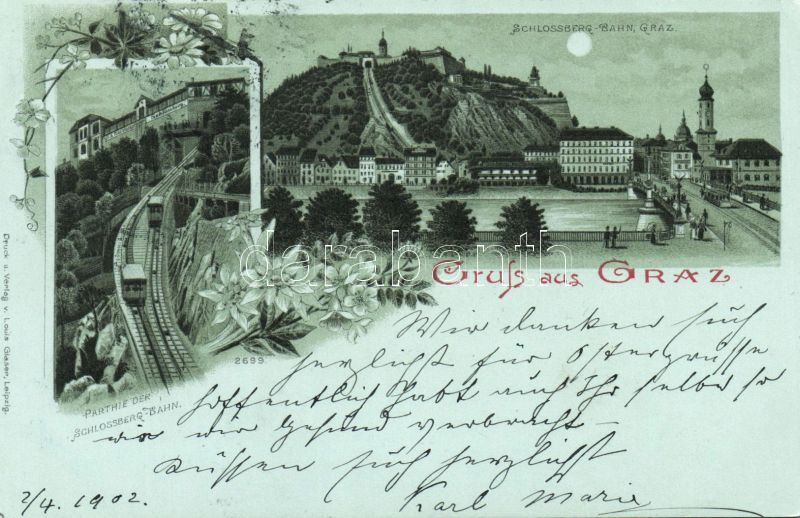 SCHLOSSBERG-BAHN, GRAZ.
Druck u. Verlag v. Louis Glaser, Leipzig.
PARTHIE DER
SCHLOSSBERG-BAHN.
2699
darabanth
Gruss aus GRAZ
Wir danken Euch
herzlichst für Ostergrüsse
hoffentlich habt auch Ihr selbe so
wie wir Gesund verbracht
Küssen Euch herzlichst
Karl Marie
2/4. 1902.